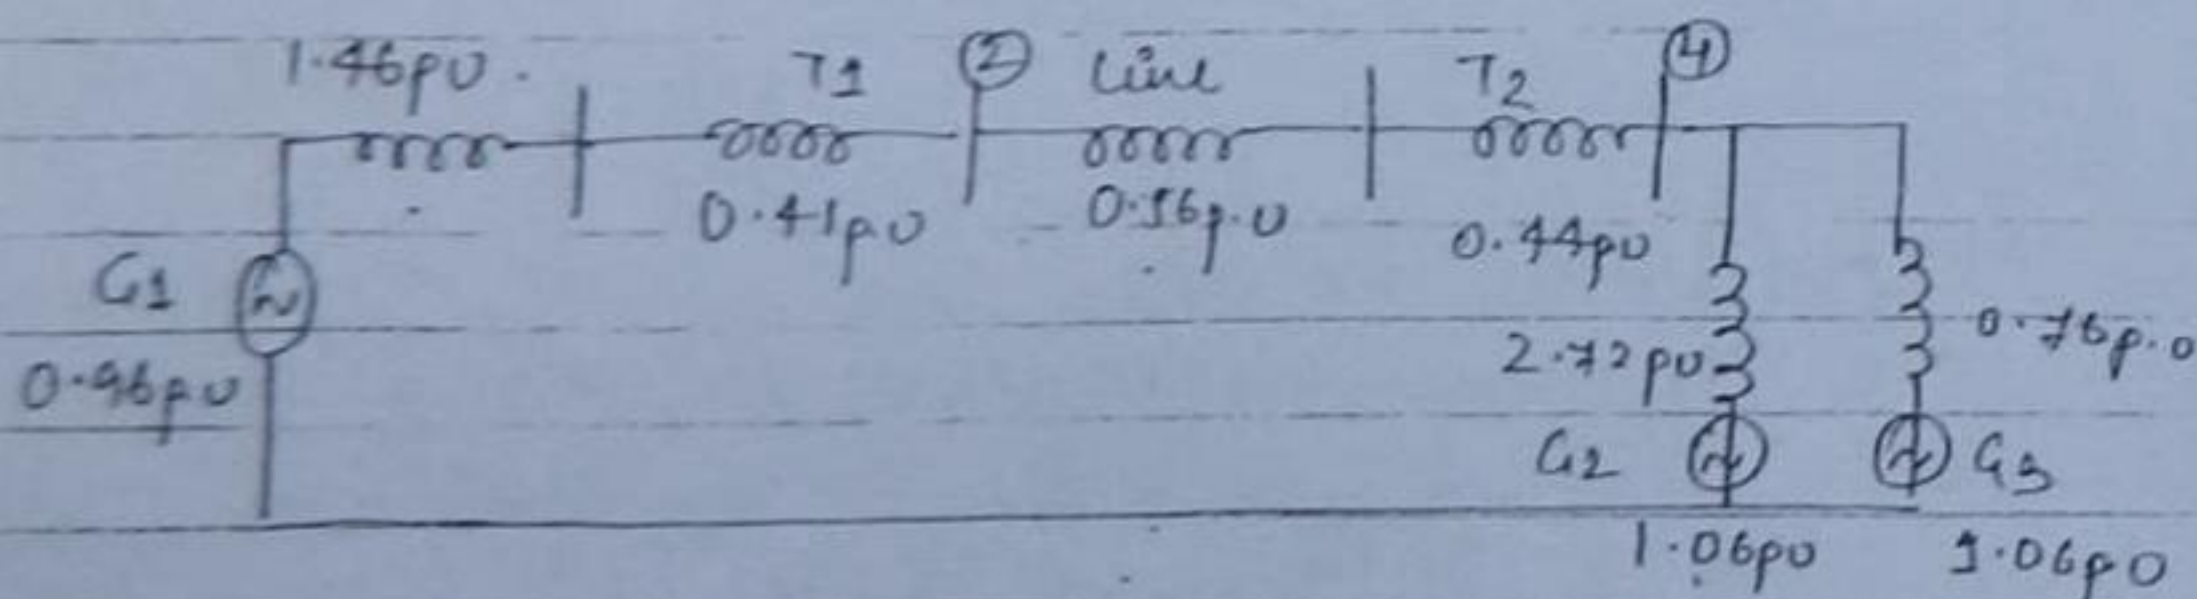 1.46pu. T1 ② Line T2 ④
0.41pu 0.56p.u 0.44pu
G1
0.96pu
2.72pu 0.76p.u
G2 G3
1.06pu 1.06pu